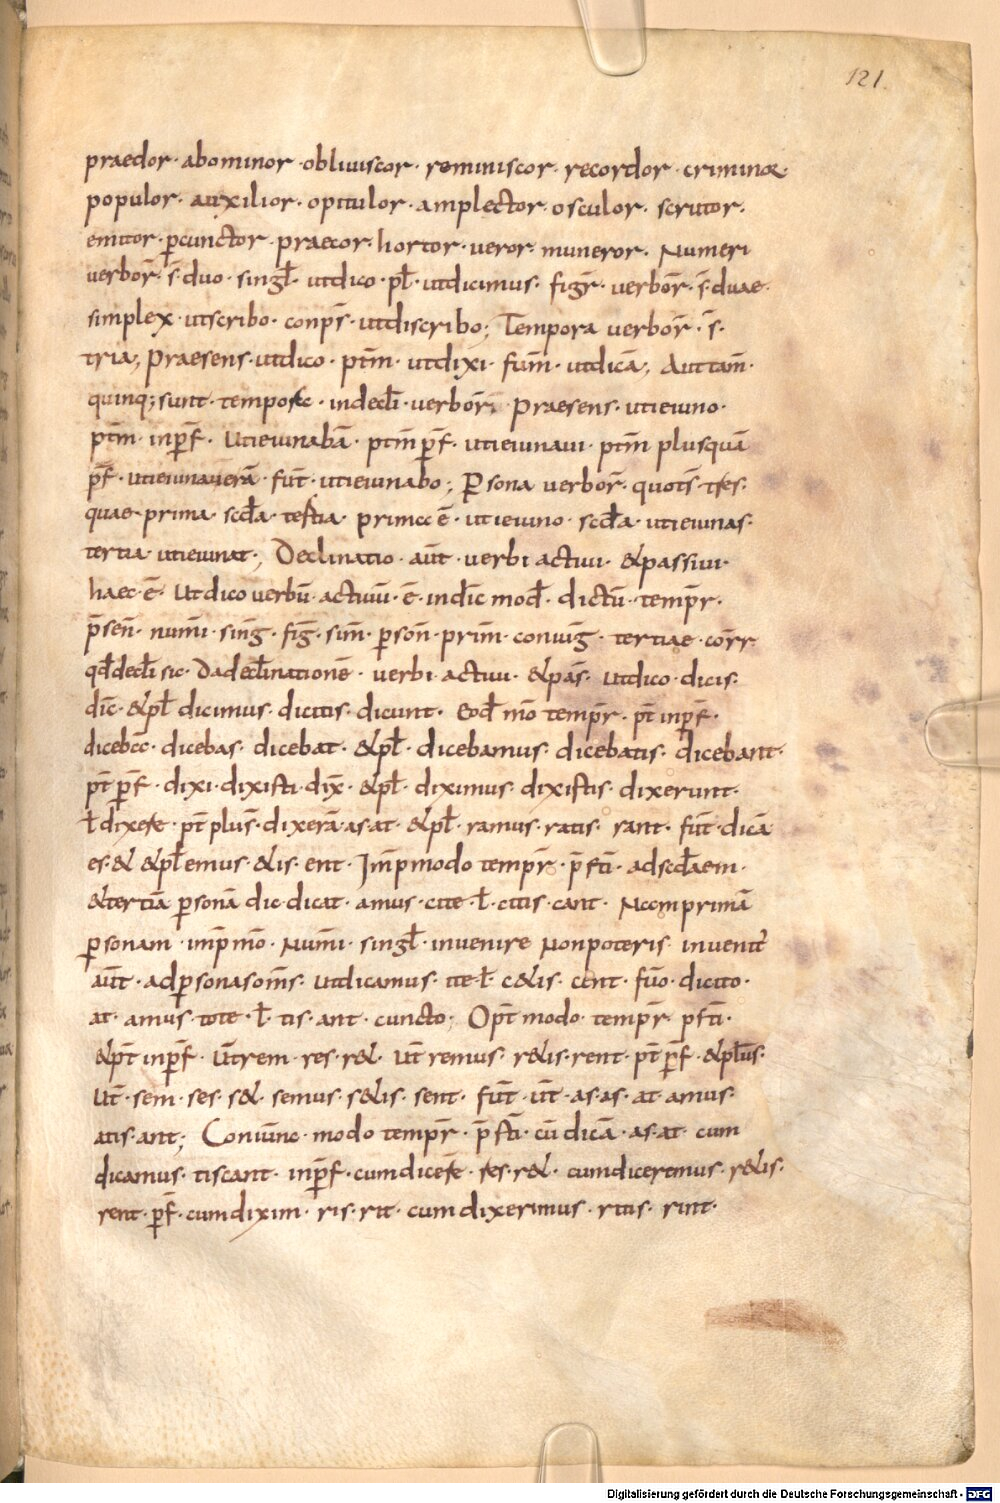 121.
praedor· abominor· obliuiscor· reminiscor· recordor· criminor·
populor· auxilior· opitulor· amplector· osculor· scrutor·
enitor· p̱cunctor· praecor· hortor· veror· muneror· Numeri
verbor̄· s̄· duo· singł· utdico· pł· utdicimus· figr̄· verbor̄· s̄· duae·
simplex· utscribo· conps̄· utdiscribo; Tempora verbor̄· s̄·
tria; Praesens· utdico· ptm̄· utdixi· fum̄· utdicā; Aut tam̄·
quinq; sunt· tempora· indecłi· verbor̄· Praesens· utieiuno·
ptm̄· inp̱f̄· Utieiunabā· ptm̄ p̱f̄· utieiunaui· ptm̄ plusquā
p̱f̄· utieiunauerā· fut̄· utieiunabo; P̱sona verbor̄· quots̄· tres·
quae· prima· scd̄a· tertia· prima ē· utieiuno· scd̄a· utieiunas·
tertia utieiunat; Declinatio· aut̄· verbi actiui· &passiui·
haec· ē· Utdico verbū· actiuū· ē· indic̄ mod̄· dictū· tempr̄·
p̄sen̄· num̄i· sinḡ· fiḡ· sim̄· p̱son̄· prim̄· coniuḡ· tertiae· corr̄
qd̄decłi sic· Dadecłinationē· verbi· actiui· &pas̄· utdico· dicis·
dic̄· &pł dicimus· dicitis· dicunt· Eod̄ mō tempr̄· pt̄ inp̱f̄·
dicebā· dicebas· dicebat· &pł· dicebamus· dicebatis· dicebant·
pt̄ p̱f̄· dixi· dixisti· dix̄· &pł· diximus· dixistis· dixerunt·
ł dixere· pt̄ plus̄· dixerā· as· at· &pł· ramus· ratis· rant· fut̄· dicā
es· & &pł emus· &is· ent· Imp̄modo tempr̄· p̄sti· adscd̄aem·
&tertiā p̱sonā dic· dicat· amus· cite· ł· citis· cant· Nam primā
p̱sonam· imp̄ mō· Num̄i· singł· invenire Nonpoteris· invenit̄
aut̄· adp̱sonasom̄s· utdicamus· ite· ł· c&is· cent· fuō· dicito·
at· amus· tote· ł· tis· ant· cuncto; Opt̄ modo· tempr̄· psti·
&pt̄ inp̱f̄· Ut̄rem· res· r&· Ut̄ remus· r&is· rent· pt̄ p̱f̄· &plus̄·
Ut̄· sem· ses· s&· semus· s&is· sent· fut̄· ut̄· as· as· at· amus·
atis· ant; Coniūnc· modo tempr̄· p̄sti· cū dicā· as· at· cum
dicamus· tiscant· inp̱f̄· cumdicere· res· r&· cumdiceremus· r&is·
rent· p̱f̄· cumdixim· ris· rit· cum dixerimus· ritis· rint·
Digitalisierung gefördert durch die Deutsche Forschungsgemeinschaft - DFG